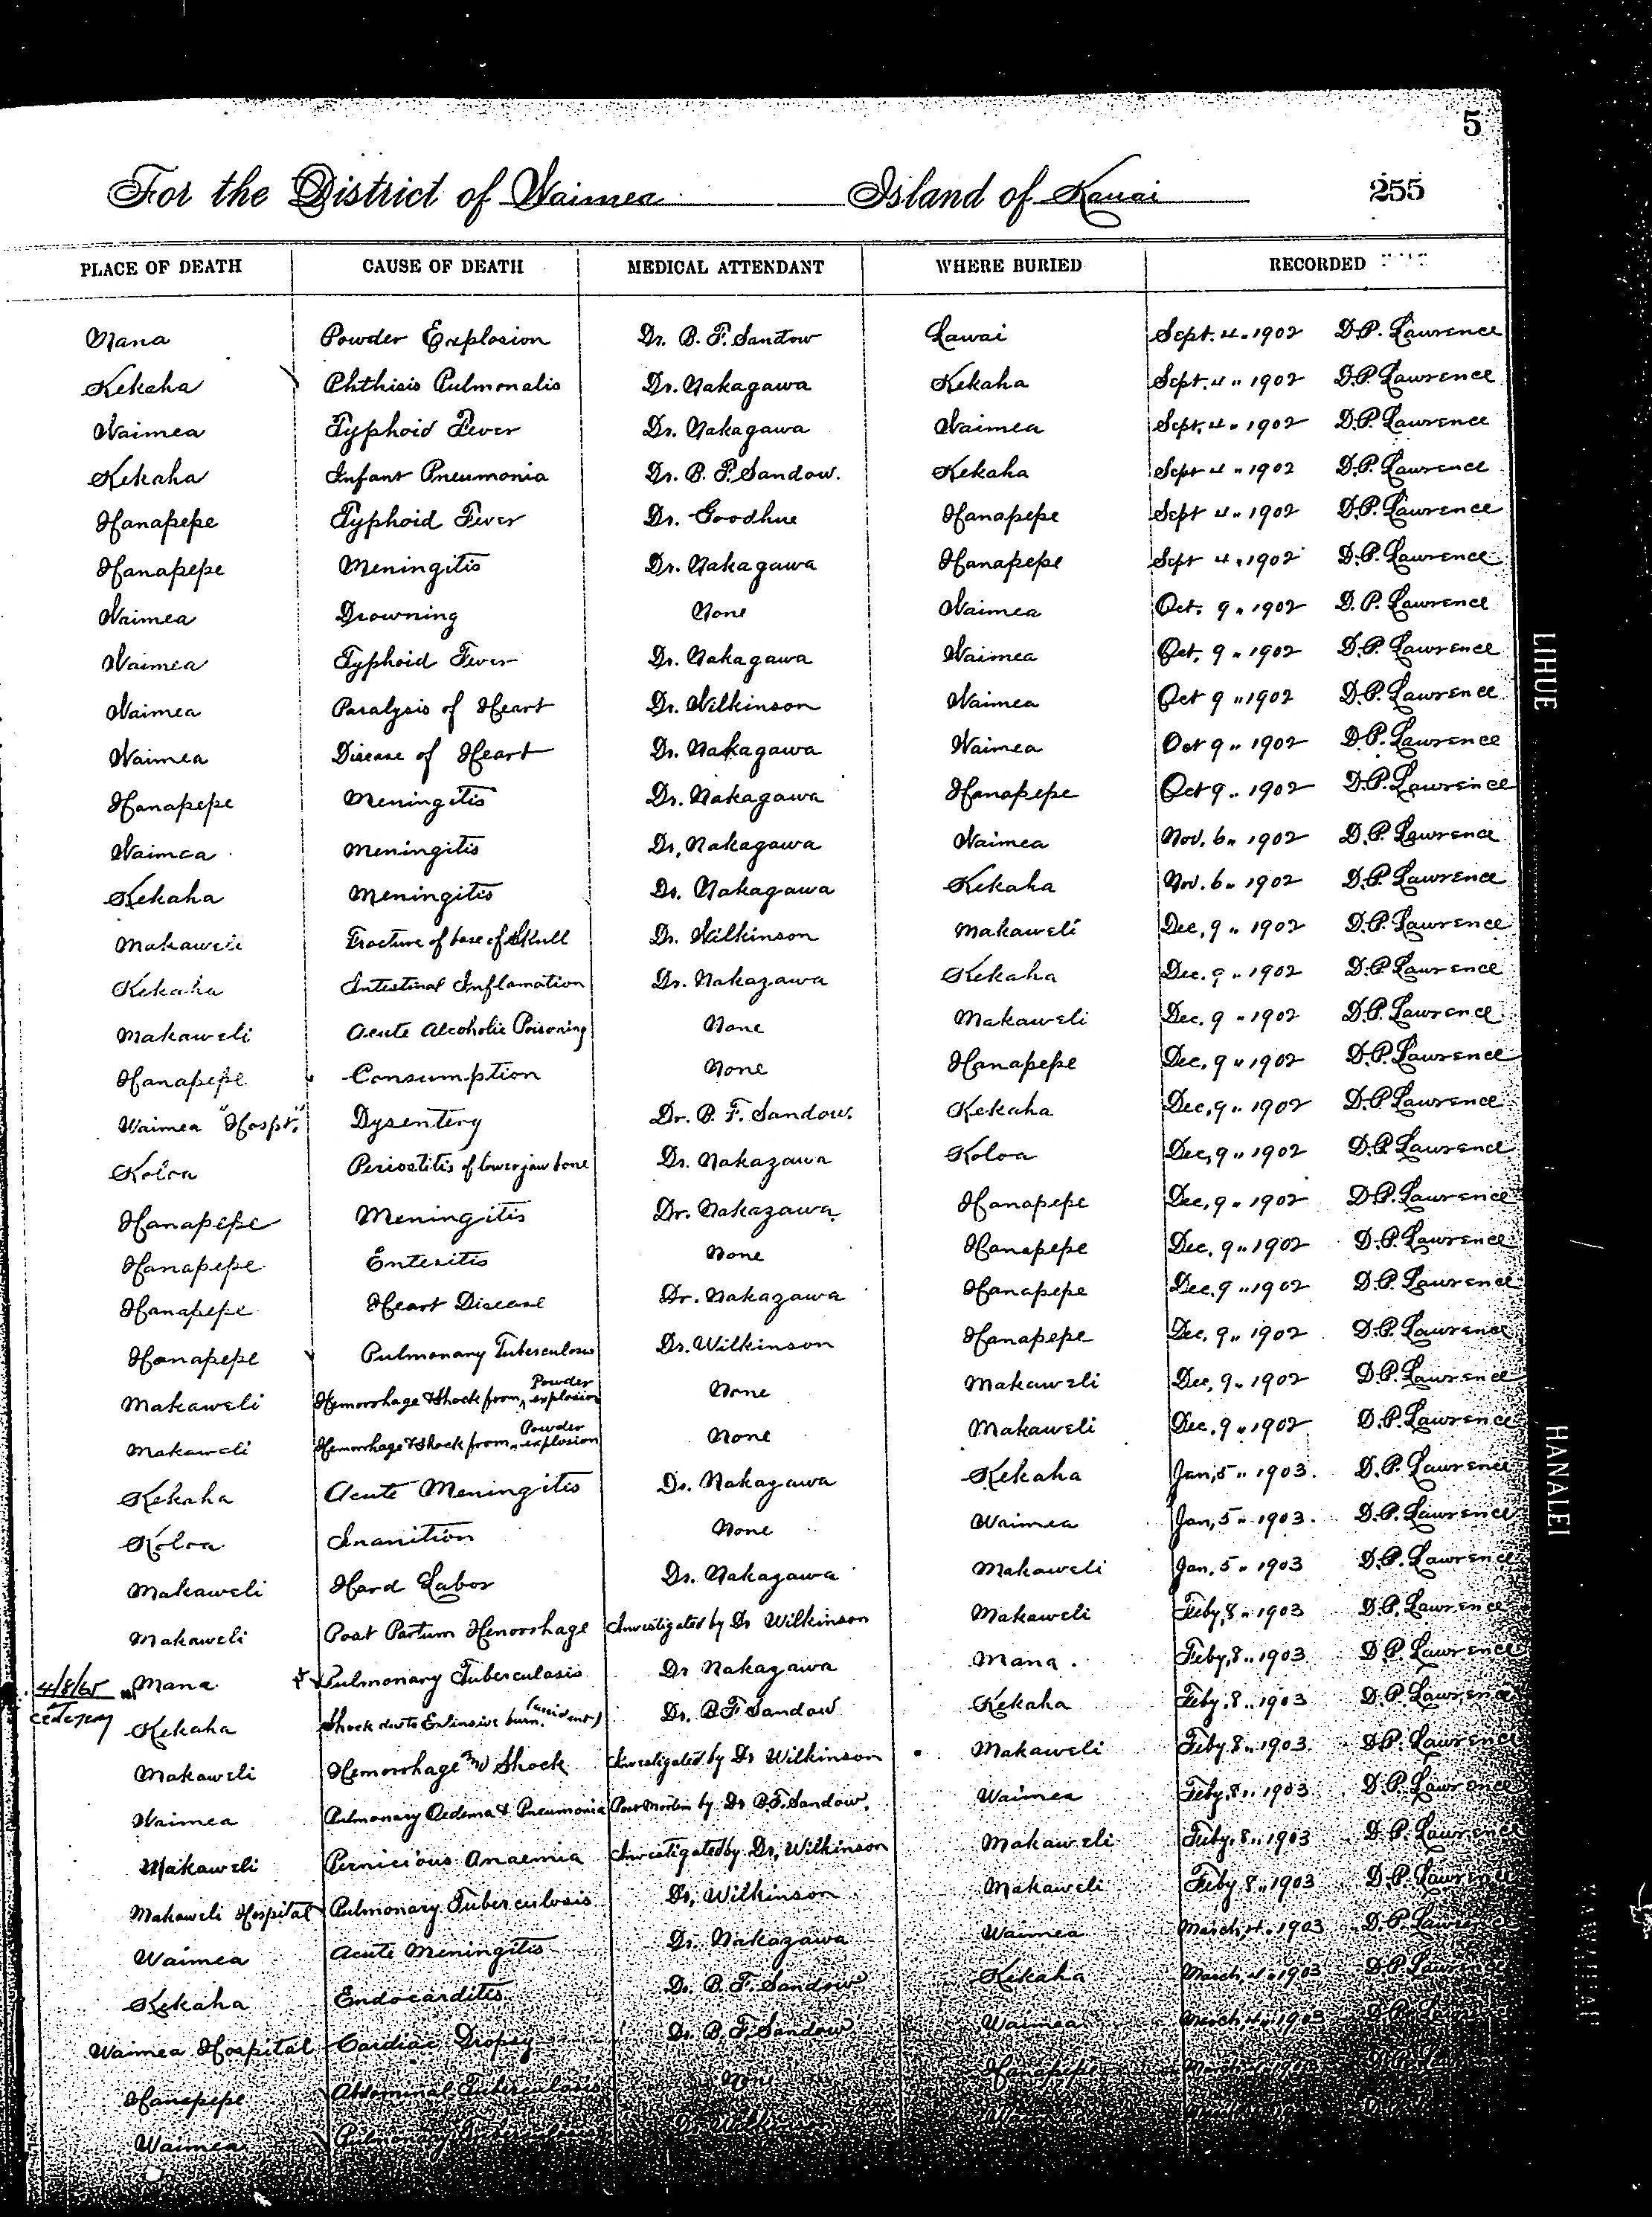 5
For the District of Waimea Island of Kauai 255
PLACE OF DEATH CAUSE OF DEATH MEDICAL ATTENDANT WHERE BURIED RECORDED
Mana Powder Explosion Dr. B. F. Sandow Lawai Sept. 4. 1902 D.P. Lawrence
Kekaha Phthisis Pulmonalis Dr. Nakagawa Kekaha Sept. 4 " 1902 D.P. Lawrence
Waimea Typhoid Fever Dr. Nakagawa Waimea Sept. 4 " 1902 D.P. Lawrence
Kekaha Infant Pneumonia Dr. B. F. Sandow. Kekaha Sept 4 " 1902 D.P. Lawrence
Hanapepe Typhoid Fever Dr. Goodhue Hanapepe Sept 4 " 1902 D.P. Lawrence
Hanapepe Meningitis Dr. Nakagawa Hanapepe Sept 4 " 1902 D.P. Lawrence
Waimea Drowning None Waimea Oct. 9 " 1902 D. P. Lawrence
Waimea Typhoid Fever Dr. Nakagawa Waimea Oct. 9 " 1902 D.P. Lawrence
Waimea Paralysis of Heart Dr. Wilkinson Waimea Oct 9 " 1902 D.P. Lawrence
Waimea Disease of Heart Dr. Nakagawa Waimea Oct 9 " 1902 D.P. Lawrence
Hanapepe Meningitis Dr. Nakagawa Hanapepe Oct 9 " 1902 D.P. Lawrence
Waimea Meningitis Dr. Nakagawa Waimea Nov. 6 " 1902 D.P. Lawrence
Kekaha Meningitis Dr. Nakagawa Kekaha Nov. 6 " 1902 D.P. Lawrence
Makaweli Fracture of base of Skull Dr. Wilkinson Makaweli Dec. 9 " 1902 D.P. Lawrence
Kekaha Intestinal Inflamation Dr. Nakazawa Kekaha Dec. 9 " 1902 D.P. Lawrence
Makaweli Acute Alcoholic Poisoning None Makaweli Dec. 9 " 1902 D.P. Lawrence
Hanapepe Consumption None Hanapepe Dec. 9 " 1902 D.P. Lawrence
Waimea "Hospt." Dysentery Dr. B. F. Sandow. Kekaha Dec. 9 " 1902 D.P. Lawrence
Koloa Periostitis of lower jaw bone Dr. Nakazawa Koloa Dec. 9 " 1902 D.P. Lawrence
Hanapepe Meningitis Dr. Nakazawa Hanapepe Dec. 9 " 1902 D.P. Lawrence
Hanapepe Enteritis None Hanapepe Dec. 9 " 1902 D.P. Lawrence
Hanapepe Heart Disease Dr. Nakazawa Hanapepe Dec. 9 " 1902 D.P. Lawrence
Hanapepe Pulmonary Tuberculosis Dr. Wilkinson Hanapepe Dec. 9 " 1902 D.P. Lawrence
Makaweli Hemorrhage & Shock from Powder explosion None Makaweli Dec. 9 " 1902 D.P. Lawrence
Makaweli Hemorrhage & Shock from Powder explosion None Makaweli Dec. 9 " 1902 D.P. Lawrence
Kekaha Acute Meningitis Dr. Nakazawa Kekaha Jan. 5 " 1903. D.P. Lawrence
Koloa Inanition None Waimea Jan. 5 " 1903. D.P. Lawrence
Makaweli Hard Labor Dr. Nakazawa Makaweli Jan. 5 " 1903 D.P. Lawrence
Makaweli Post Partum Hemorrhage Investigated by Dr Wilkinson Makaweli Feby. 8 " 1903 D.P. Lawrence
4/8/65 Mana Pulmonary Tuberculosis Dr Nakazawa Mana. Feby. 8 " 1903 D.P. Lawrence
Kekaha Shock due to Extensive burn (accident) Dr. B.F. Sandow Kekaha Feby. 8 " 1903 D.P. Lawrence
Makaweli Hemorrhage and Shock Investigated by Dr Wilkinson Makaweli Feby 8 " 1903 D.P. Lawrence
Waimea Pulmonary Oedema & Pneumonia Post Mortem by Dr B.F. Sandow. Waimea Feby. 8 " 1903 D.P. Lawrence
Makaweli Pernicious Anaemia Investigated by Dr. Wilkinson Makaweli Feby. 8 " 1903 D.P. Lawrence
Makaweli Hospital Pulmonary Tuberculosis Dr. Wilkinson Makaweli Feby 8 " 1903 D.P. Lawrence
Waimea Acute Meningitis Dr. Nakazawa Waimea March 4 " 1903 D.P. Lawrence
Kekaha Endocarditis Dr. B. F. Sandow Kekaha March 4 " 1903 D.P. Lawrence
Waimea Hospital Cardiac Dropsy Dr. B. F. Sandow Waimea March 4 " 1903
Hanapepe Abdominal Tuberculosis None Hanapepe
Waimea Pulmonary
LIHUE
HANALEI